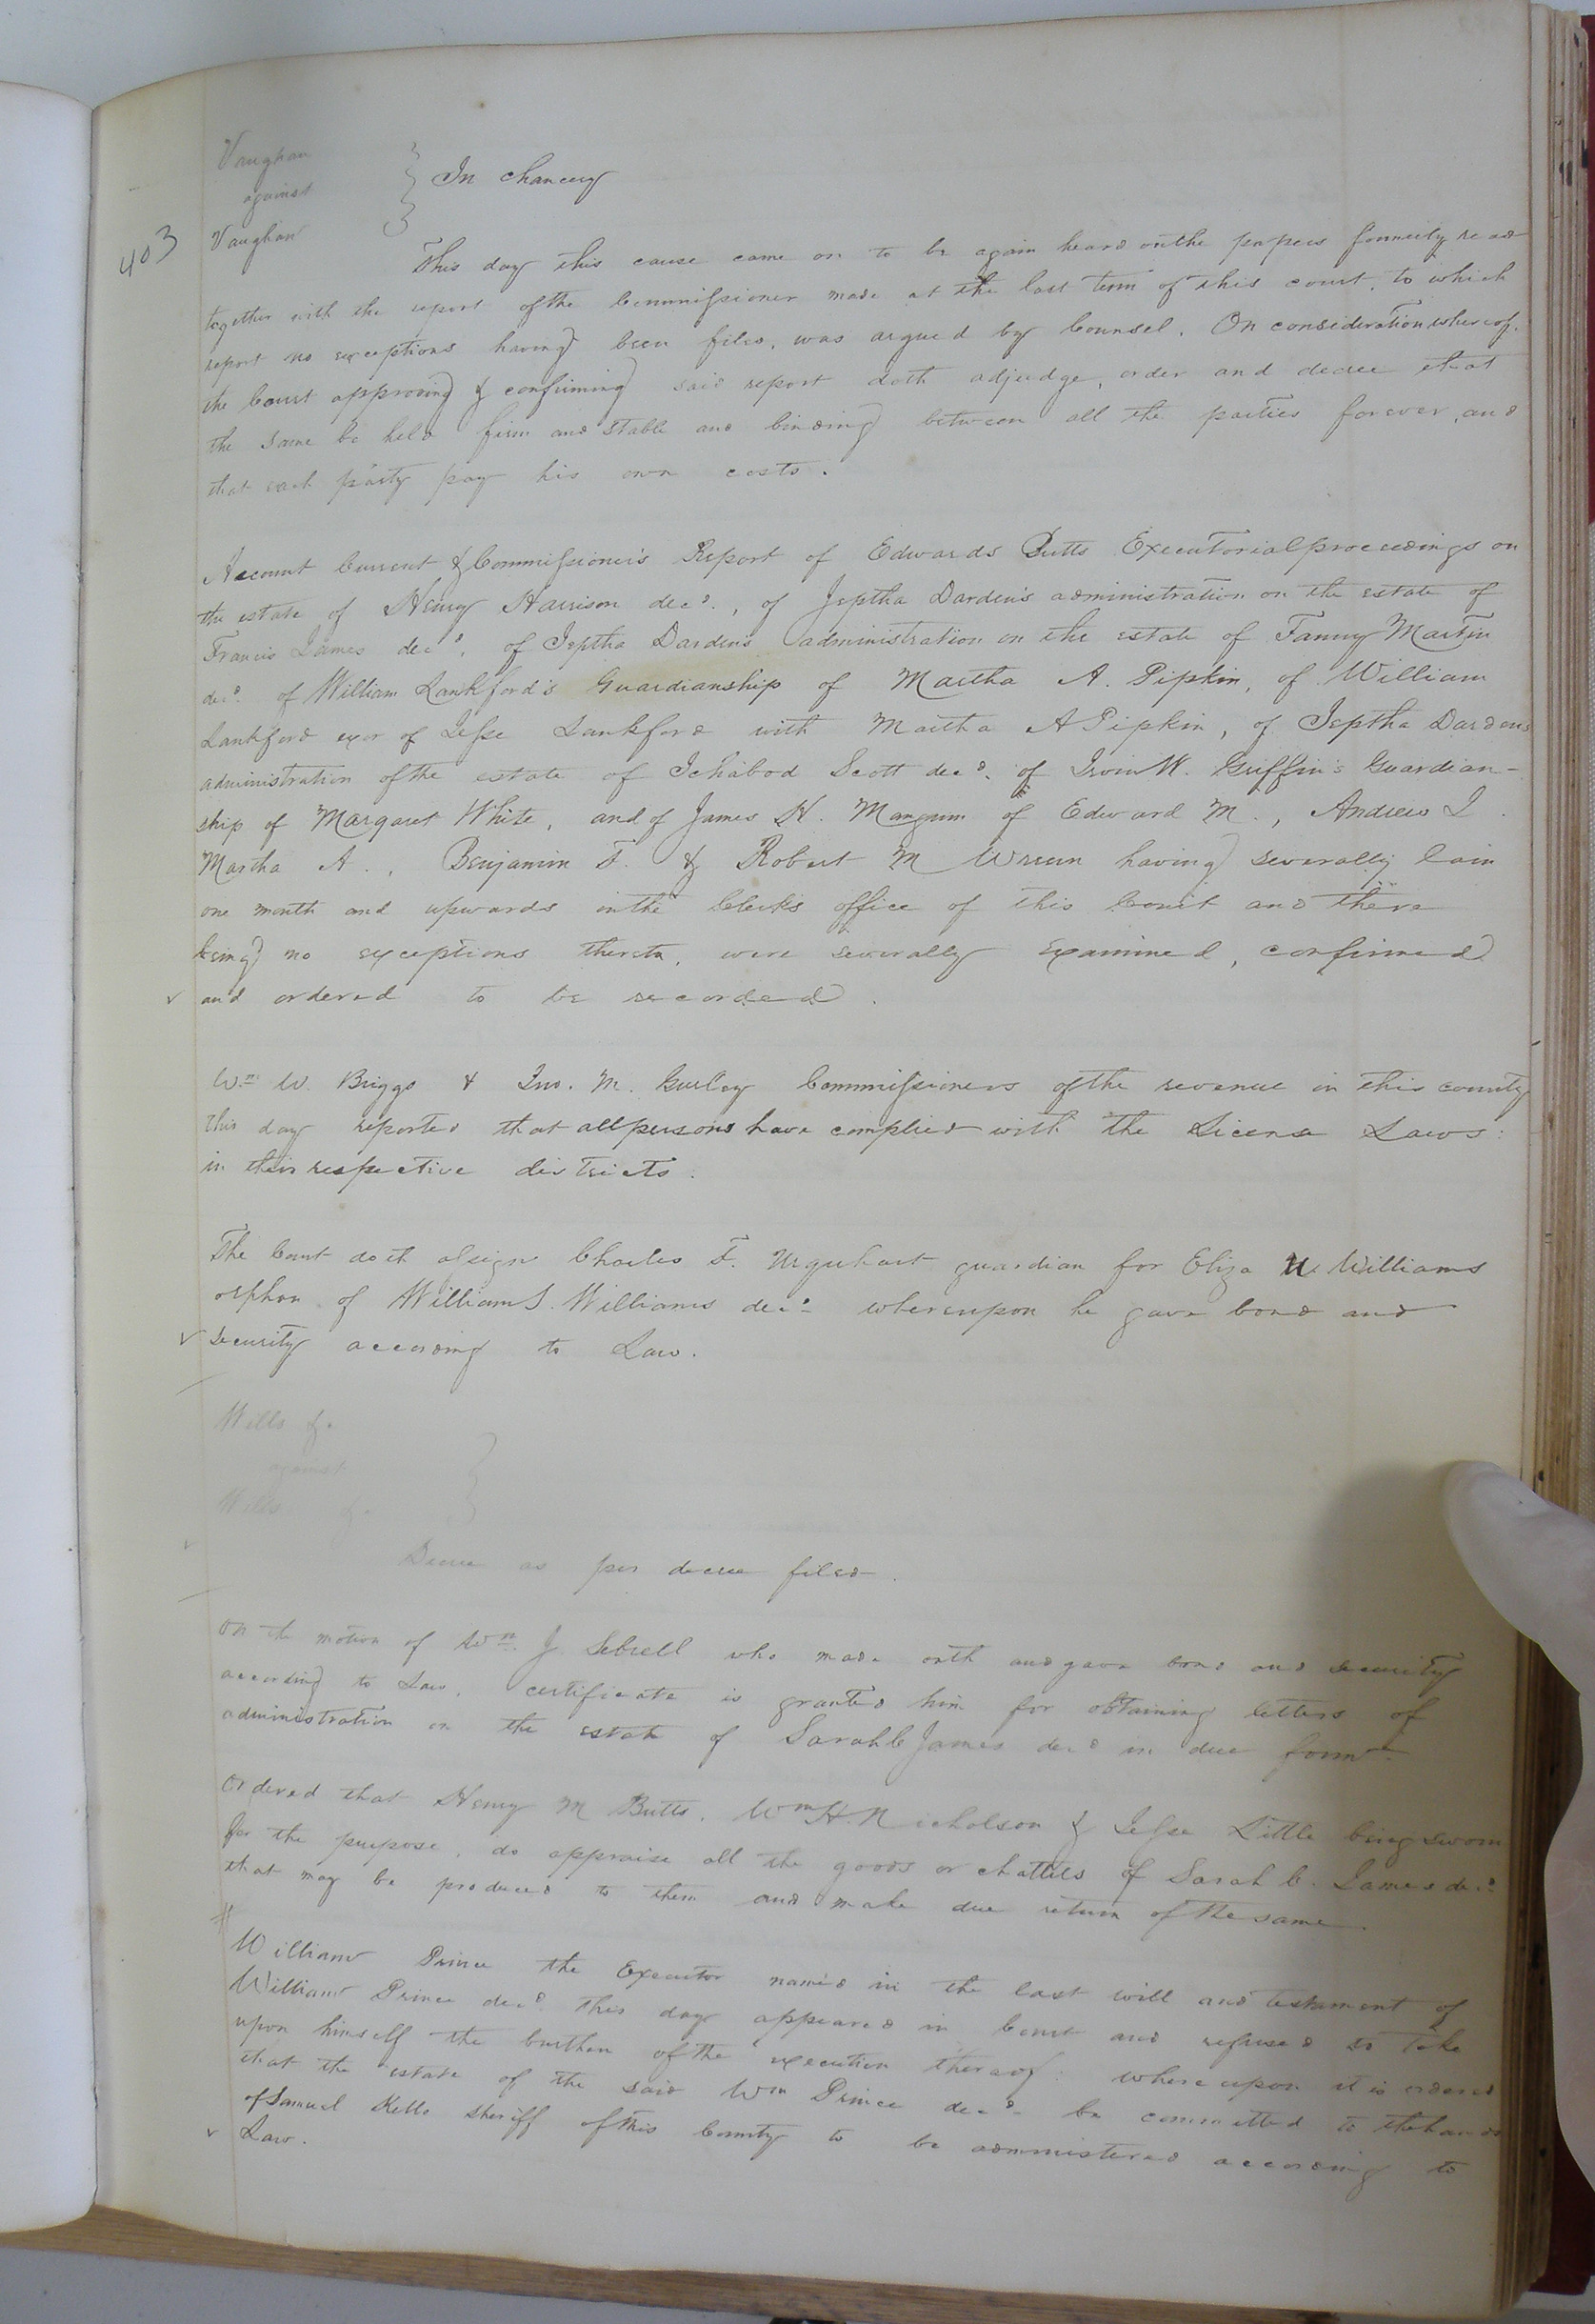 Vaughan
against } In chancery
403
Vaughan
This day this cause came on to be again heard on the papers formerly read
together with the report of the Commissioner made at the last term of this court, to which
report no exceptions having been filed, was argued by Counsel. On consideration whereof.
the Court approving & confirming said report doth adjudge, order and decree that
the same be held firm and stable and binding between all the parties forever, and
that each party pay his own costs.
Account Current & Commissioner's Report of Edwards Butts Executorial proceedings on
the estate of Henry Harrison decd., of Jeptha Darden's administration on the estate of
Francis James decd, of Jeptha Dardens administration on the estate of Fanny Martin
decd. of William Lankford's Guardianship of Martha A. Pipkin, of William
Lankford exor of Jesse Lankford with Martha A Pipkin, of Jeptha Dardens
administration of the estate of Ichabod Scott decd. of Irvin W. Griffin's Guardian-
ship of Margaret White, and of James H. Mangum of Edward M., Andrew J.
Martha A., Benjamin F. & Robert M Wrenn having severally lain
one month and upwards in the Clerks office of this Court and there
being no exceptions thereto, were severally examined, confirmed
and ordered to be recorded.
Wm W. Briggs & Jno. M. Gurley Commissioners of the revenue in this county
this day reported that all persons have complied with the License Laws
in their respective districts.
The Court doth assign Charles F. Urquhart guardian for Eliza N. Williams
orphan of William S. Williams decd whereupon he gave bond and
security according to Law.
Wills &c
against }
Wills &c
Decree as per decree filed.
On the motion of Wm. J. Sebrell who made oath and gave bond and security
according to Law, certificate is granted him for obtaining letters of
administration on the estate of Sarah C James decd in due form.
Ordered that Henry M Butts, Wm H. Nicholson & Jesse Little being sworn
for the purpose, do appraise all the goods or chattles of Sarah C. James decd
that may be produced to them and make due return of the same.
William Prince the Executor named in the last will and testament of
William Prince decd. this day appeared in Court and refused to take
upon himself the burthen of the execution thereof: whereupon it is ordered
that the estate of the said Wm Prince decd be committed to the hands
of Samuel Kello sheriff of this County to be administered according to
Law.